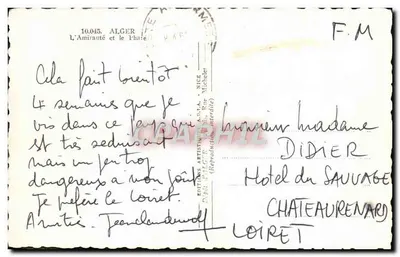 10.045. ALGER
L'Amirauté et le Phare
F.M
Cela fait bientôt
4 semaines que je
vis dans ce pays qui
est très séduisant
mais un peu trop
dangereux à mon goût
Je préfère le Loiret.
Amitié. Jeanclaude
Monsieur Madame
DIDIER
Hotel du SAUVAGE
CHATEAURENARD
LOIRET